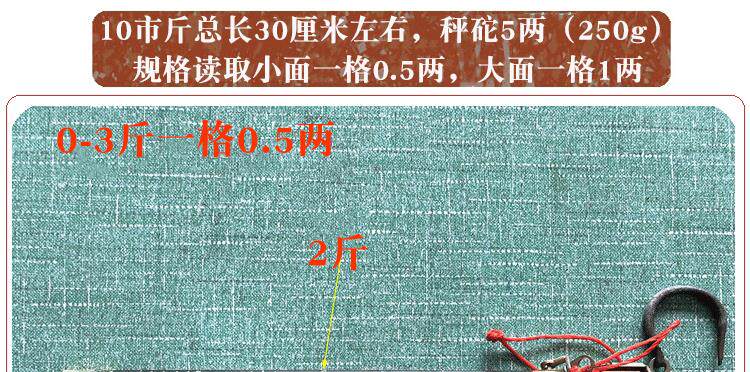 10市斤总长30厘米左右，秤砣5两（250g）
规格读取小面一格0.5两，大面一格1两
0-3斤一格0.5两
2斤